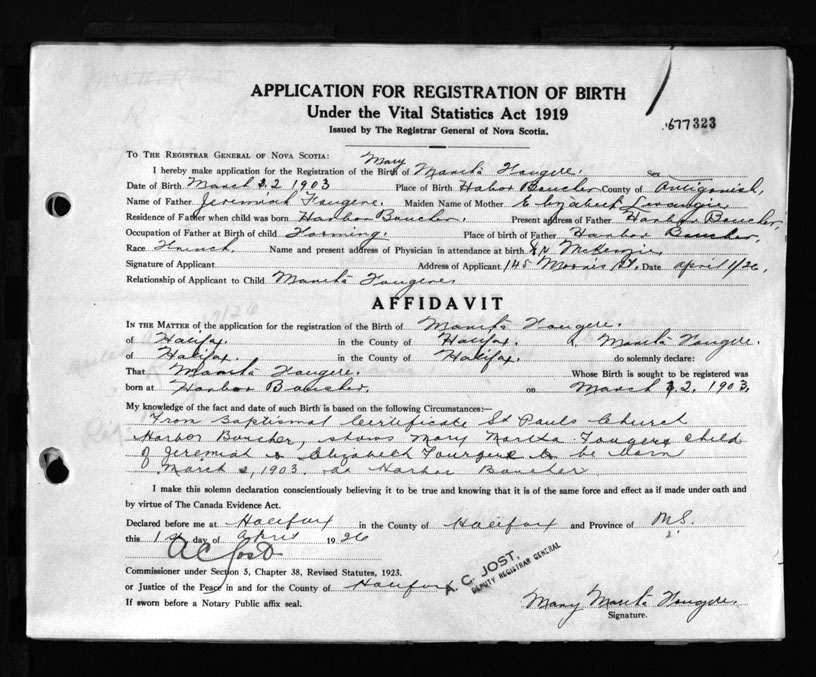 APPLICATION FOR REGISTRATION OF BIRTH
Under the Vital Statistics Act 1919
Issued by The Registrar General of Nova Scotia.
577323
TO THE REGISTRAR GENERAL OF NOVA SCOTIA:
Mary
I hereby make application for the Registration of the Birth of Manita Fougere. Sex
Date of Birth March 2 1903 Place of Birth Habor Boucher County of Antigonish,
Name of Father Jeremiah Fougere. Maiden Name of Mother Elizabeth
Residence of Father when child was born Harbor Boucher. Present address of Father Harbor Boucher,
Occupation of Father at Birth of child Farming. Place of birth of Father Harbor Boucher,
Race French. Name and present address of Physician in attendance at birth McKenzie
Signature of Applicant Address of Applicant 145 Morris St. Date April 1/26,
Relationship of Applicant to Child Manita Fougere
AFFIDAVIT
IN THE MATTER of the application for the registration of the Birth of Manita Fougere.
of Halifax. in the County of Halifax. I, Manita Fougere.
of Halifax. in the County of Halifax. do solemnly declare:
That Manita Fougere. Whose Birth is sought to be registered was
born at Harbor Boucher. on March 2, 1903,
My knowledge of the fact and date of such Birth is based on the following Circumstances:—
From Baptismal Certificate St Pauls Church
Harbor Boucher, shows Mary Fougere child
of Jeremiah & Elizabeth Fourgere to be born
March 2, 1903. at Harbor Boucher
I make this solemn declaration conscientiously believing it to be true and knowing that it is of the same force and effect as if made under oath and
by virtue of The Canada Evidence Act.
Declared before me at Halifax in the County of Halifax and Province of N.S.
this 1st day of April 1926
A C Jost
Commissioner under Section 5, Chapter 38, Revised Statutes, 1923.
or Justice of the Peace in and for the County of Halifax
A. C. JOST,
DEPUTY REGISTRAR GENERAL
If sworn before a Notary Public affix seal.
Mary Manita Fougere.
Signature.